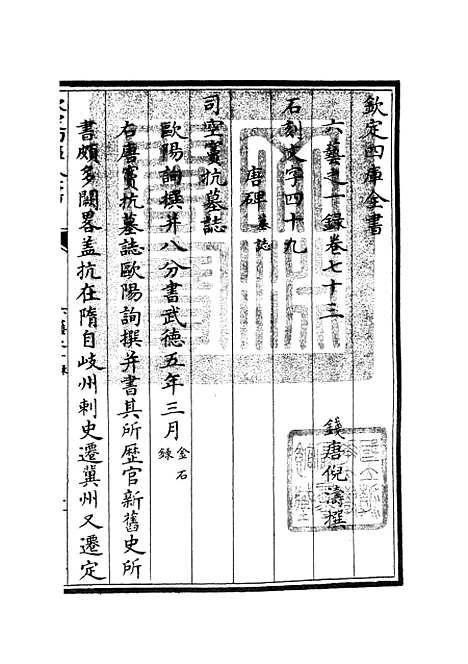 欽定四庫全書
六藝之一錄卷七十三
錢唐倪濤撰
石刻文字四十九
唐碑 墓誌
司空竇抗墓誌
歐陽詢撰并八分書武德五年三月 金石錄
右唐竇抗墓誌歐陽詢撰并書其所歷官新舊史所
書頗多闕畧盖抗在隋自岐州刺史遷冀州又遷定